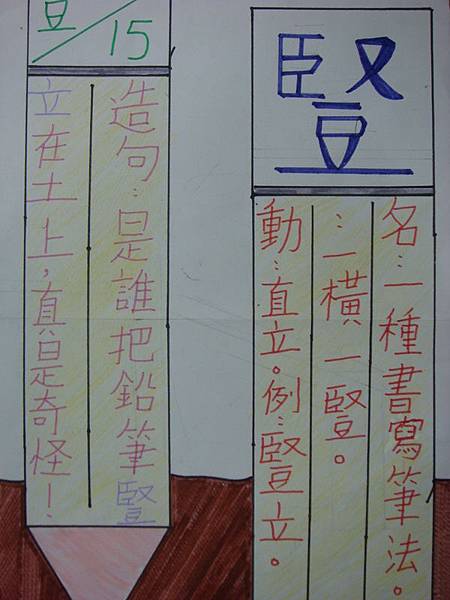 豎
名：一種書寫筆法。
：一橫一豎。
動：直立。例：豎立。
豆/15
造句：是誰把鉛筆豎
立在土上，真是奇怪！